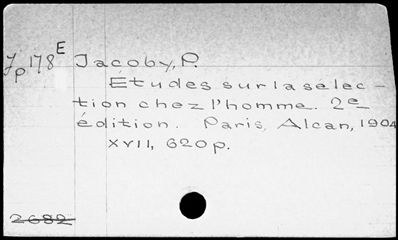 Jp 178E Jacoby, P.
Etudes sur la sélec-
tion chez l'homme. 2e
édition. Paris, Alcan, 1904
XVII, 620 p.
2682